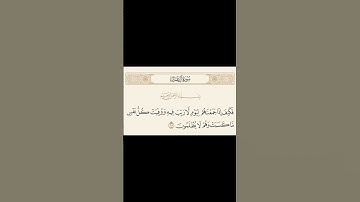 بِسْمِ اللَّهِ الرَّحْمَٰنِ الرَّحِيمِ
فَكَيْفَ إِذَا جَمَعْنَٰهُمْ لِيَوْمٍ لَّا رَيْبَ فِيهِ وَوُفِّيَتْ كُلُّ نَفْسٍ
مَّا كَسَبَتْ وَهُمْ لَا يُظْلَمُونَ